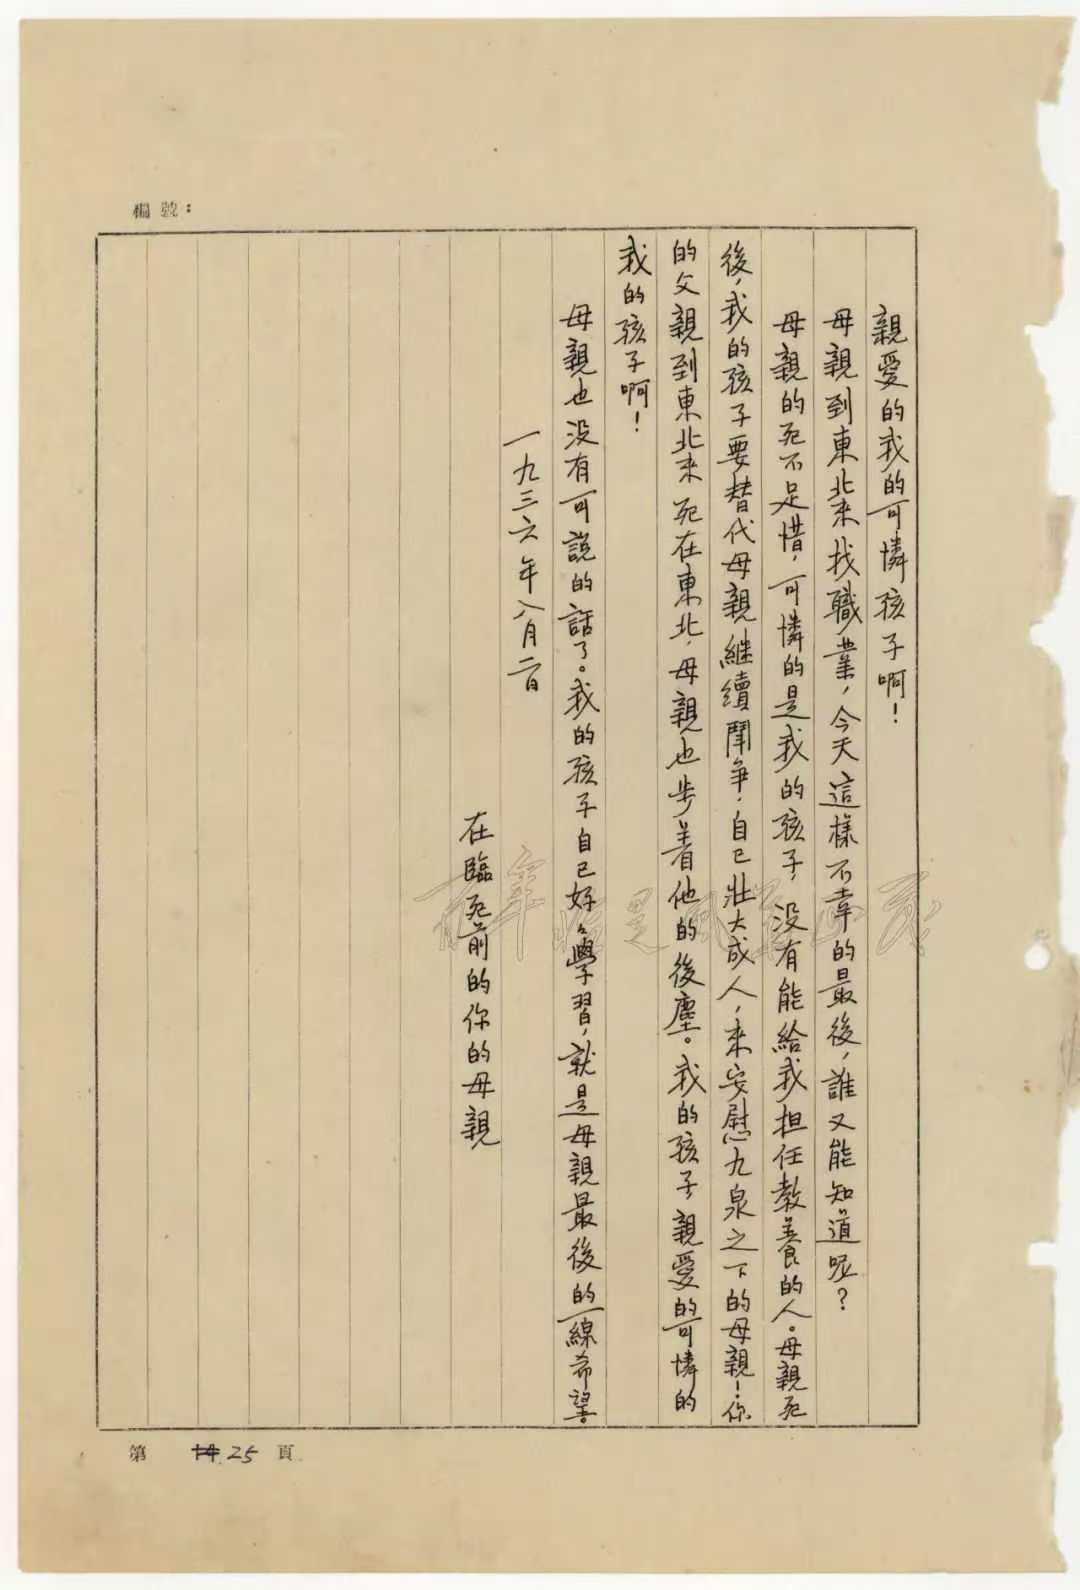 編號：
親愛的我的可憐孩子啊！
母親到東北來找職業，今天這樣不幸的最後，誰又能知道呢？
母親的死不足惜，可憐的是我的孩子，没有能給我担任教養的人。母親死
後，我的孩子要替代母親繼續鬥争，自己壯大成人，來安慰九泉之下的母親！你
的父親到東北來死在東北，母親也步着他的後塵。我的孩子，親愛的可憐的
我的孩子啊！
母親也没有可說的話了。我的孩子自己好好學習，就是母親最後的一線希望。
一九三六年八月二日
在臨死前的你的母親
第 25 頁